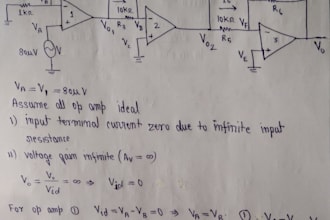 1kΩ
80μV
V
VA
1
Vo1
10kΩ
R3
2
Vo2
10kΩ
R5
R6
Vo
VA = V1 = 80μV
Assume all op amp ideal
I) input terminal current zero due to infinite input
resistance
II) voltage gain infinite (Av = ∞)
Vo = Vo/Vid = ∞ ⇒ Vid = 0
For op amp ① Vid = VA - VB = 0 ⇒ VA = VB